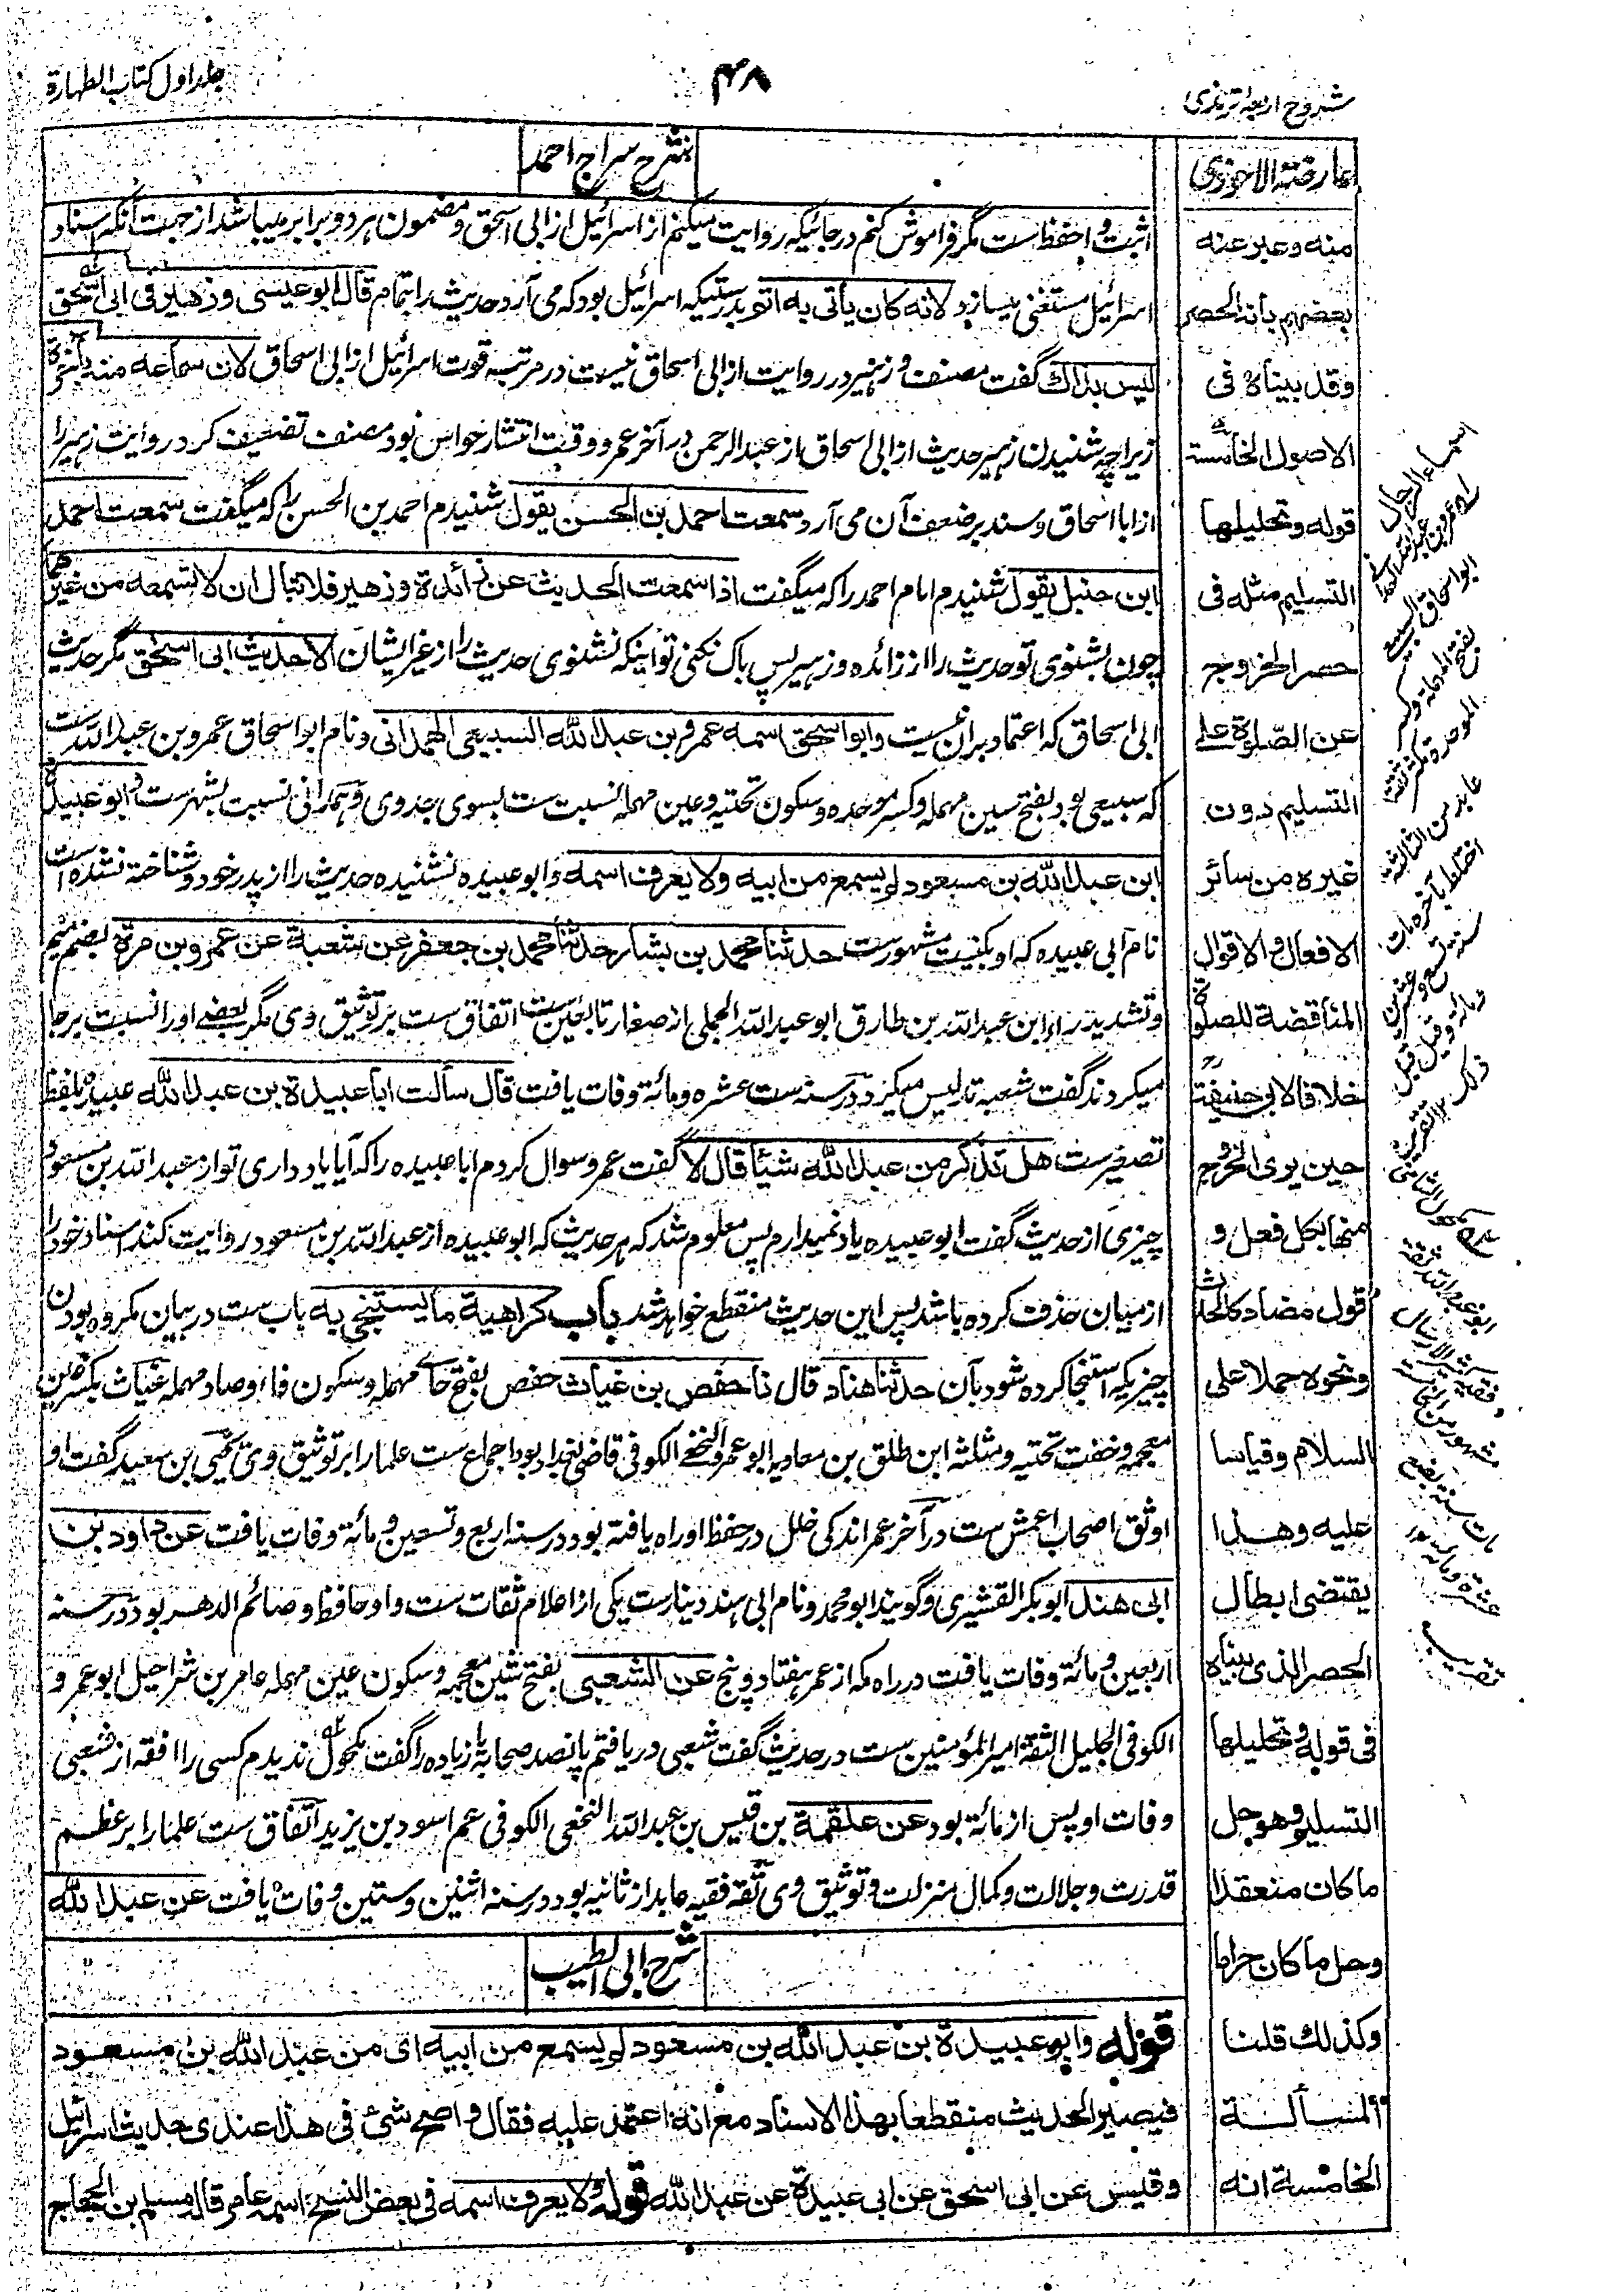 شروح اربعۂ ترمذی
۴۸
جلد اول کتاب الطهارة
عارضة الاحوذی
منه وعبر عنه
بعضهم بأنه الحصر
وقد بیناه فی
الاصول الخامسة
قوله وتحلیلها
التسلیم مثله فی
حصر الخروج
عن الصّلوة علی
التسلیم دون
غیره من سائر
الافعال والاقوال
المناقضة للصلوٰة
خلافا لابی حنیفة
حین یری الخروج
منها بکل فعل و
قول مضاد کالحدث
ونحوه حملا علی
السلام وقیاسا
علیه وهذا
یقتضی ابطال
الحصر الذی بیناه
فی قوله وتحلیلها
التسلیم وهو حل
ما کان منعقدا
وحل ما کان حراما
وکذلك قلنا
المسألــة
الخامسة انه
شرح سراج احمد
اثبت و احفظ ست مگر فراموش کنم در جائیکه روایت میکنم از اسرائیل از ابی اسحق و مضمون هر دو برابر میباشد از جهت آنکه اسناد
اسرائیل مستغنی میسازد لانه کان یأتی به اتم بدرستیکه اسرائیل بود که می آرد حدیث را بتمام قال ابو عیسی وزهیر فی ابی اسحق
لیس بذاك گفت مصنف و زهیر در روایت از ابی اسحاق نیست در مرتبه قوت اسرائیل از ابی اسحاق لان سماعه منه بأخرة
زیرا چه شنیدن زهیر حدیث از ابی اسحاق از عبد الرحمن در آخر عمر و وقت انتشار حواس بود مصنف تضعیف کرد روایت زهیر را
از ابا اسحاق و سند بر ضعف آن می آرد سمعت احمد بن الحسن یقول شنیدم احمد بن الحسن را که میگفت سمعت احمد
ابن حنبل یقول شنیدم امام احمد را که میگفت اذا سمعت الحدیث عن زائدة وزهیر فلا تبال ان لا تسمعه من غیرهما
چون بشنوی تو حدیث را از زائده و زهیر پس باک نکنی تو اینکه نشنوی حدیث را از غیر ایشان الا حدیث ابی اسحق مگر حدیث
ابی اسحاق که اعتماد بر آن نیست وابو اسحق اسمه عمرو بن عبد الله السبیعی الهمدانی و نام ابو اسحاق عمرو بن عبد الله ست
که سبیعی بود بفتح سین مهمله و کسر موحده و سکون تحتیه و عین مهمله نسبت ست بسوی جدوی و همدانی نسبت بشهرست وابو عبیدة
ابن عبد الله بن مسعود لم یسمع من ابیه ولا یعرف اسمه وابو عبیده نشنیده حدیث را از پدر خود و شناخته نشده است
نام ابی عبیده که او بکنیت مشهورست حدثنا محمد بن بشار حدثنا محمد بن جعفر عن شعبة عن عمرو بن مرة بضم میم
و تشدید راء ابن عبد الله بن طارق ابو عبد الله الجملی از صغار تابعین ست اتفاق ست بر توثیق وی مگر بعضے او را نسبت برجا
میکردند گفت شعبه تدلیس میکرد در سنه ست عشره و مائة وفات یافت قال سألت ابا عبیدة بن عبد الله عبیده بلفظ
تصغیرست هل تذکر من عبد الله شیئا قال لا گفت عمرو سوال کردم ابا عبیده را که آیا یاد داری تو از عبد الله بن مسعود
چیزی از حدیث گفت ابو عبیده یاد نمیدارم پس معلوم شد که هر حدیث که ابو عبیده از عبد الله بن مسعود روایت کند اسناد خود را
از میان حذف کرده باشد پس این حدیث منقطع خواهد شد باب کراهیة ما یستنجی به باب ست در بیان مکروه بودن
چیزیکه استنجا کرده شود بآن حدثنا هناد قال نا حفص بن غیاث حفص بفتح حای مهمله و سکون فاء وصاد مهمله غیاث بکسر غین
معجمه و خفت تحتیه و مثلثه ابن طلق بن معاویه ابو عمرو النخعی الکوفی قاضی بغداد بود اجماع ست علما را بر توثیق وی یحیی بن سعید گفت او
اوثق اصحاب اعمش ست در آخر عمر اندکی خلل در حفظ او راه یافته بود در سنه اربع و تسعین و مائة وفات یافت عن داود بن
ابی هند ابو بکر القشیری و گویند ابو محمد و نام ابی هند دینار ست یکی از اعلام ثقات ست و او حافظ و صائم الدهر بود در سنه
اربعین و مائة وفات یافت در راه مکه از عمر هفتاد و پنج عن الشعبی بفتح شین معجمه و سکون عین مهمله عامر بن شراحیل ابو عمرو
الکوفی الجلیل الثقة امیر المؤمنین ست در حدیث گفت شعبی دریافتم پانصد صحابه یا زیاده را گفت مکحول ندیدم کسی را افقه از شعبی
وفات او پس از مائة بود عن علقمة بن قیس بن عبد الله النخعی الکوفی عم اسود بن یزید اتفاق ست علما را بر عظم
قدرت و جلالت و کمال منزلت و توثیق وی ثقة فقیه عابد از ثانیه بود در سنه اثنین وستین وفات یافت عن عبد الله
شرح ابی الطیب
قوله وابو عبیدة بن عبد الله بن مسعود لم یسمع من ابیه ای من عبد الله بن مسعود
فیصیر الحدیث منقطعا بهذا الاسناد مع انه اعتمد علیه فقال واصح شیء فی هذا عندی حدیث اسرائیل
وقیس عن ابی اسحق عن ابی عبیدة عن عبد الله قوله ولا یعرف اسمه فی بعض النسخ اسمه عامر قاله مسلم بن الحجاج
اسماء الرجال
ابو اسحاق السبیعی
بفتح المهملة وکسر
الموحدة مکثر ثقة
عابد من الثالثة
اختلط بآخره مات
سنة تسع وعشرین
ومائة وقیل قبل
ذلك ۱۲ تقریب
مکحول الشامی
ابو عبد الله ثقة
فقیه کثیر الارسال
مشهور من الخامسة
مات سنة بضع
عشرة ومائة ۱۲
تقریب